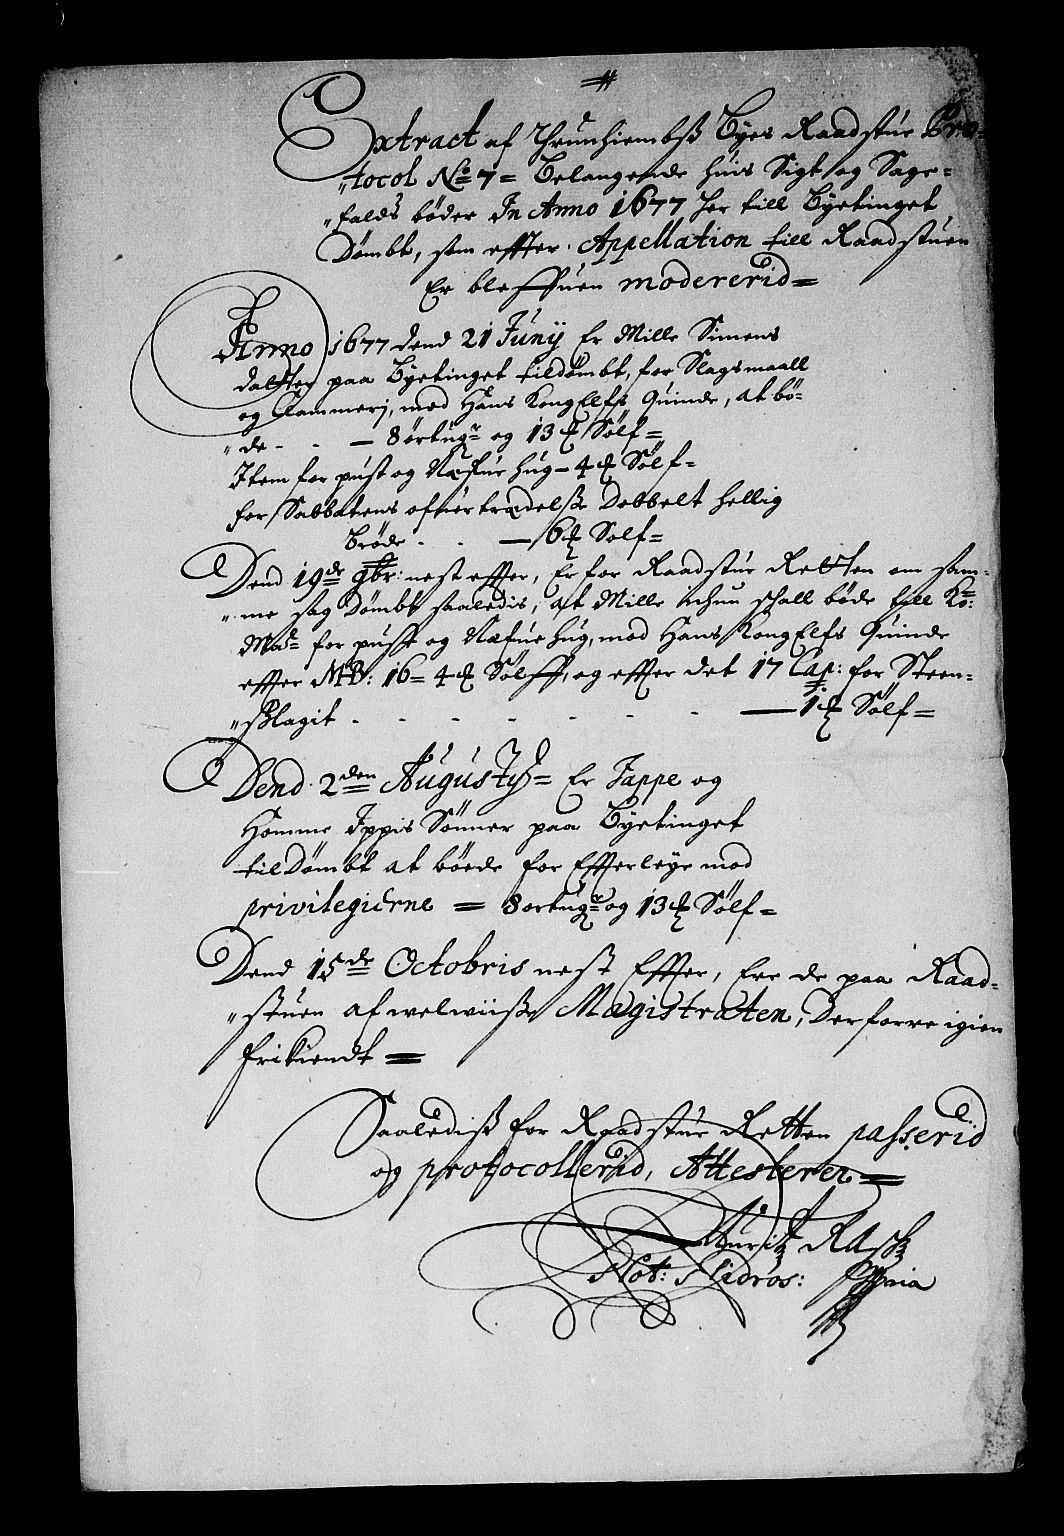 Extract af Thrunhiembß Byes Raadstue Pro-
"tocol No 7 = Belangende huis Sigt og Sage-
"falds bøder In Anno 1677 her till Byetinget
Dømbt, som effter Appellation till Raadstuen
Er bleffuen modererid =
Anno 1677 dend 21 Junij Er Mille Simens
datter paa Byetinget tildømbt, for Slagsmaall
og Clammerj, med Hans KongElfs Quinde, at bø-
"de - - - 8 ørtugr og 13 ℔ Sølf =
Item for pust og Næfue hug - 4 ℔ Sølf =
for Sabbatens ofuertrædelße Dobbelt hellig
brøde - - - 6 ℔ Sølf =
Dend 19de 9br: nest effter, Er for Raadstue Retten om sam-
"me sag Dømbt saaledis, at Mille schall bøde till Ko:
Mad= for pust og Næfue hug, med Hans KongElfs Quinde
effter MB: 16 = 4 ℔ Sølff, og effter det 17 Cap: for Steen-
"Slagit - - - - - - - 1 ℔ Sølf =
Dend 2den Augustij = Er Jappe og
Homme Ippis Sønner paa Byetinget
tilDømbt at bøede for Efferleye mod
privilegierne = 8 ortugr og 13 ℔ Sølf =
Dend 15de Octobris nest Effter, Ere de paa Raad-
"stuen af welwiiße Magistraten, Derforre igien
frikiendt =
Saalediß for Raadstue Retten passerid
og protocollerid, Attesterer =
Mauritz Rask
Not: Nidros: